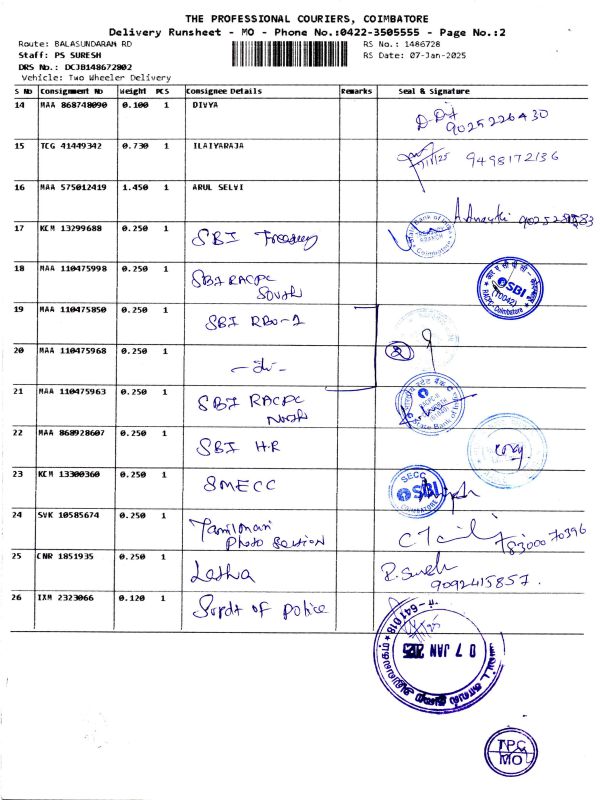 THE PROFESSIONAL COURIERS, COIMBATORE
Delivery Runsheet - MO - Phone No.:0422-3505555 - Page No.:2
Route: BALASUNDARAM RD
RS No.: 1486728
Staff: PS SURESH
RS Date: 07-Jan-2025
DRS No.: DCJB148672802
Vehicle: Two Wheeler Delivery
S No Consignment No Weight PCS Consignee Details Remarks Seal & Signature
14 MAA 868748090 0.100 1 DIVYA
9025226430
15 TCG 41449342 0.730 1 ILAIYARAJA 9498172136
16 MAA 575012419 1.450 1 ARUL SELVI
17 KCM 13299688 0.250 1 SBI Treasury
18 MAA 110475998 0.250 1 SBI RACPC South
SBI
RACPC-Coimbatore
19 MAA 110475850 0.250 1 SBI RBO-2
20 MAA 110475968 0.250 1 2
21 MAA 110475963 0.250 1 SBI RACPC North
22 MAA 868928607 0.250 1 SBI HR
23 KCM 13300360 0.250 1 SMECC
SECC
SBI
COIMBATORE
24 SVK 10585674 0.250 1 Photo Section
25 CNR 1851935 0.250 1 Latha
R. Suresh
9092415857.
26 IXM 2323066 0.120 1 Supdt of police
641 018
07 JAN 2025
TPC
MO